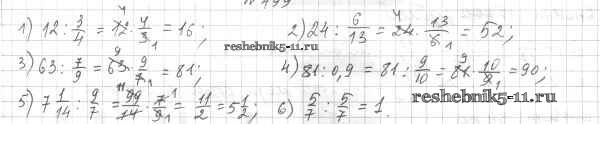 № 499
1) 12 : 3/4 = 12 · 4/3 = 16; 2) 24 : 6/13 = 24 · 13/6 = 52;
reshebnik5-11.ru
3) 63 : 7/9 = 63 · 9/7 = 81; 4) 81 : 0,9 = 81 : 9/10 = 81 · 10/9 = 90;
5) 7 1/14 : 9/7 = 99/14 · 7/9 = 11/2 = 5 1/2; 6) 5/7 : 5/7 = 1.
reshebnik5-11.ru